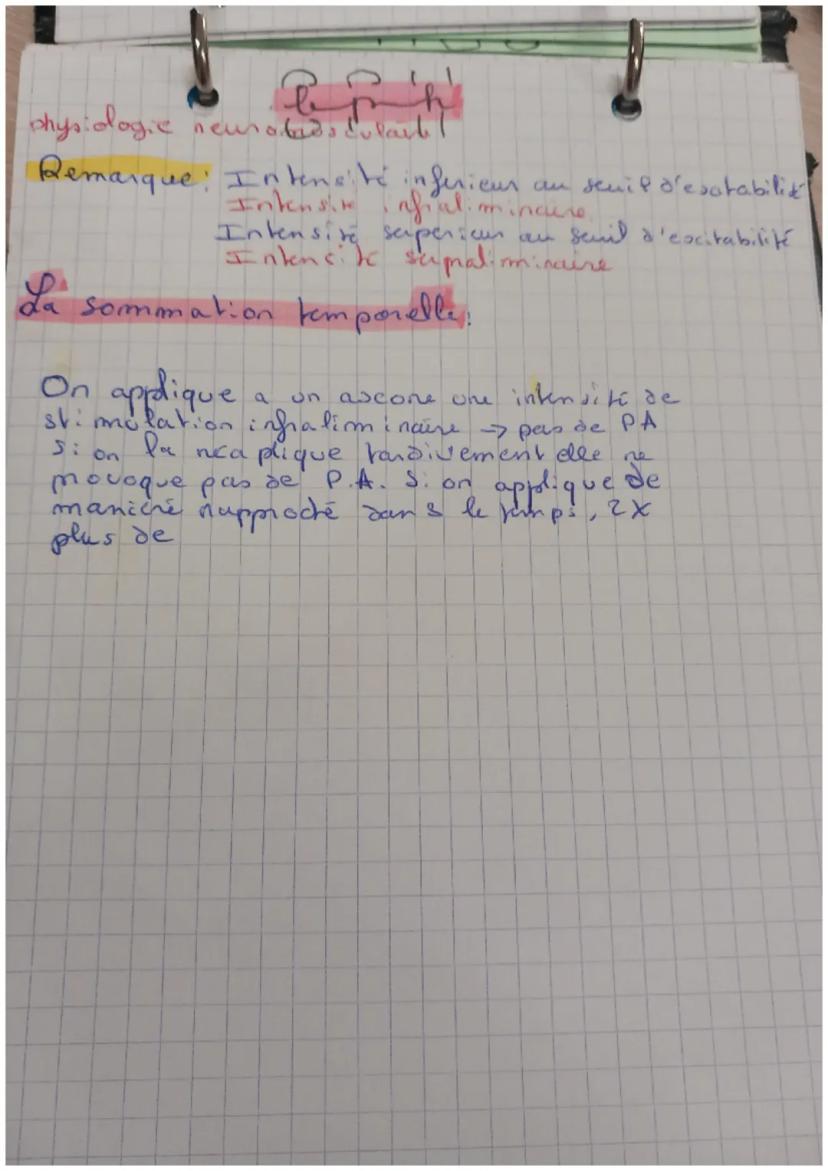 physiologie neuromusculaire
Remarque: Intensité inferieur au seuil d'exotabilité
Intensite infraliminaire
Intensité superieur au seuil d'excitabilité
Intencité supraliminaire
La sommation temporelle:
On applique a un axcone une intensité de
stimulation infraliminaire → pas de PA
Si on la réaplique tardivement elle ne
provoque pas de P.A. Si on applique de
manière rapproché dans le temps, 2X
plus de